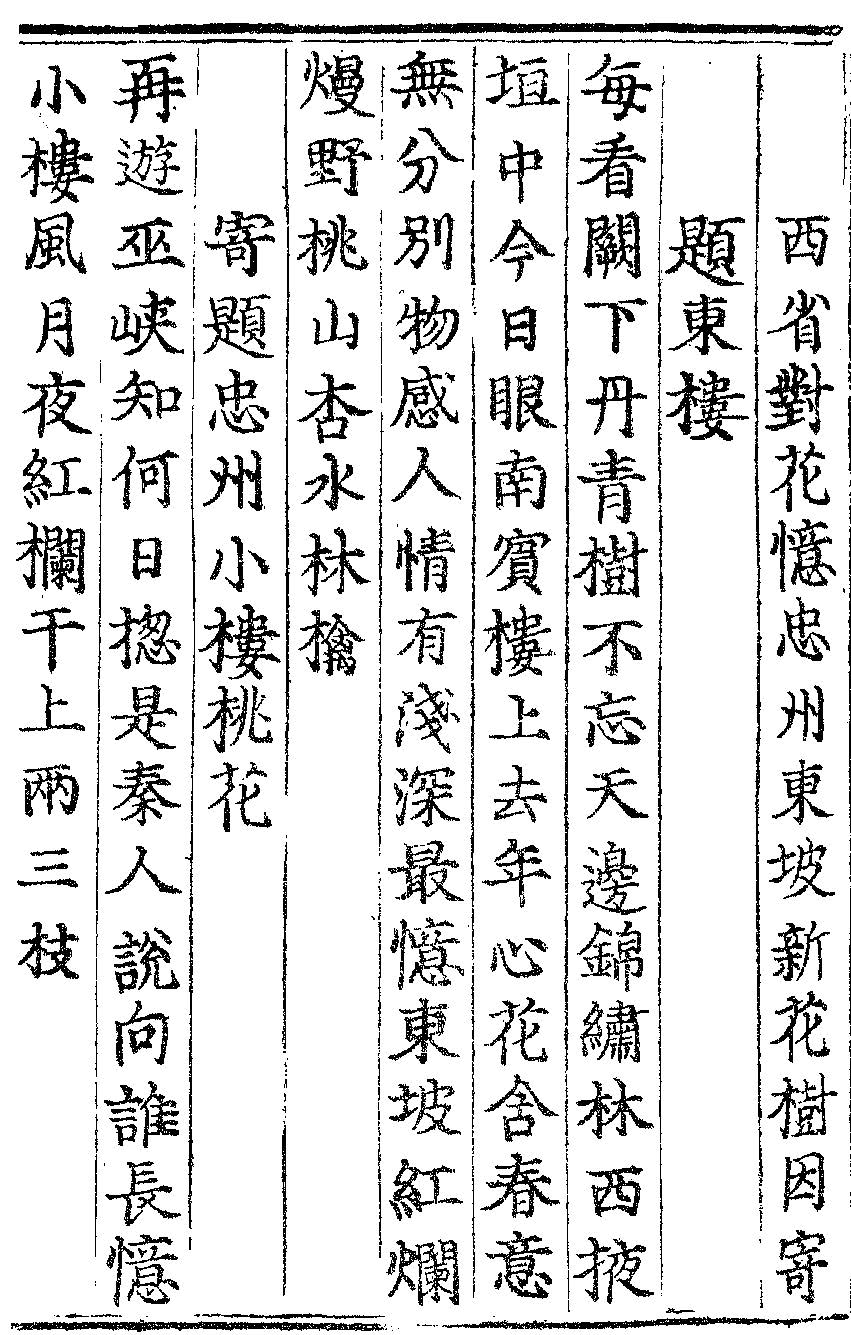 西省對花憶忠州東坡新花樹因寄
題東樓
每看闕下丹青樹不忘天邊錦繡林西掖
垣中今日眼南賓樓上去年心花含春意
無分別物感人情有淺深最憶東坡紅爛
熳野桃山杏水林檎
寄題忠州小樓桃花
再遊巫峽知何日揔是秦人說向誰長憶
小樓風月夜紅欄干上兩三枝